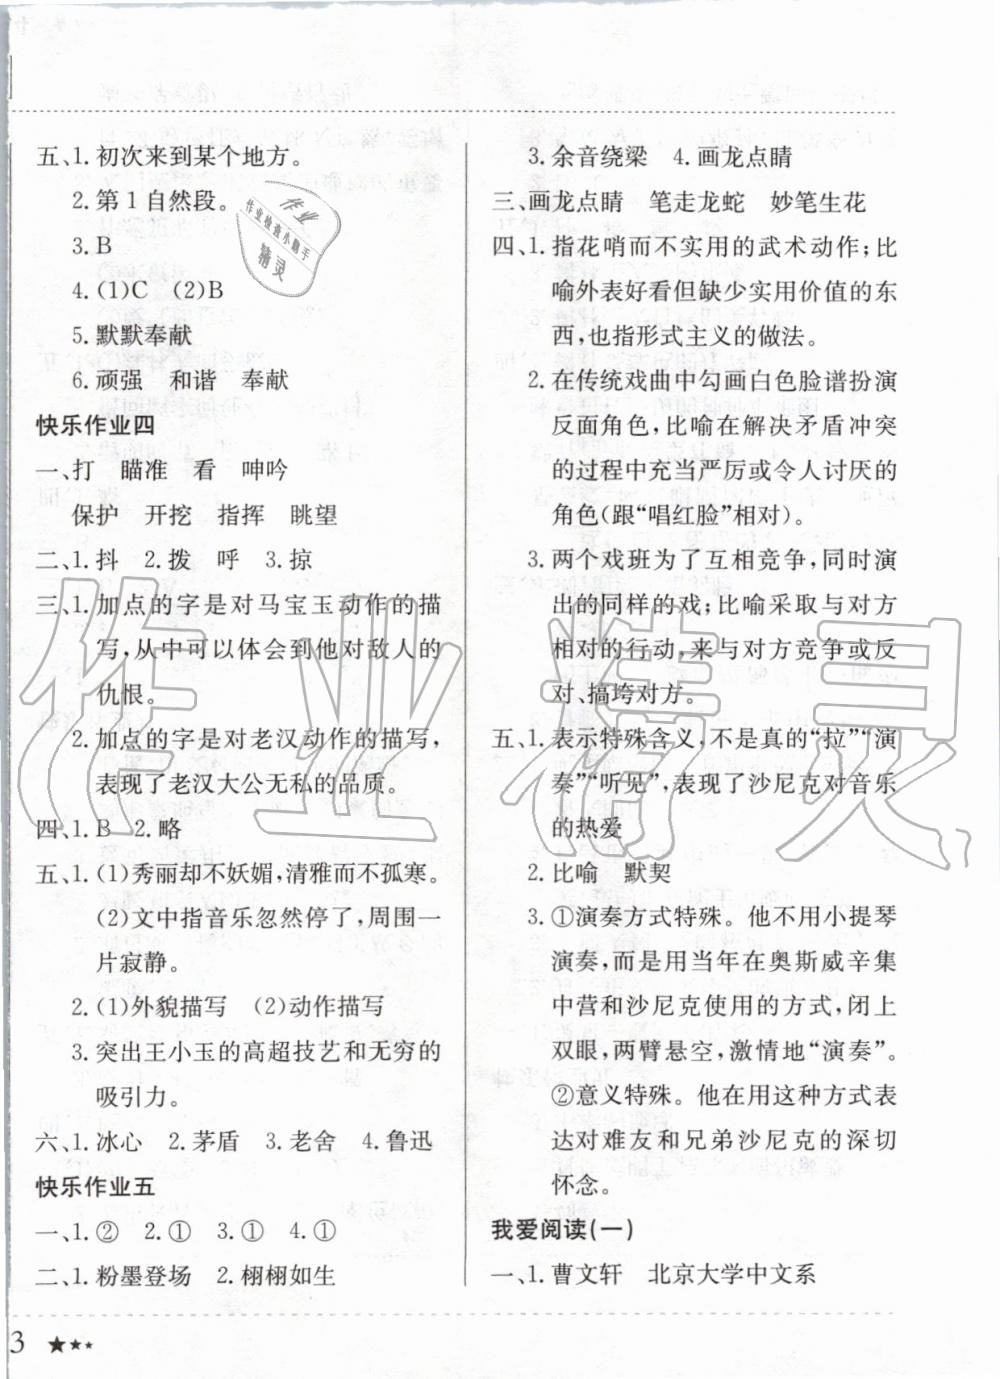 五、1. 初次来到某个地方。
2. 第1自然段。
3. B
4. (1)C (2)B
5. 默默奉献
6. 顽强 和谐 奉献
快乐作业四
一、打 瞄准 看 呻吟
保护 开挖 指挥 眺望
二、1. 抖 2. 拨 呼 3. 掠
三、1. 加点的字是对马宝玉动作的描
写,从中可以体会到他对敌人的
仇恨。
2. 加点的字是对老汉动作的描写,
表现了老汉大公无私的品质。
四、1. B 2. 略
五、1. (1)秀丽却不妖媚,清雅而不孤寒。
(2)文中指音乐忽然停了,周围一
片寂静。
2. (1)外貌描写 (2)动作描写
3. 突出王小玉的高超技艺和无穷的
吸引力。
六、1. 冰心 2. 茅盾 3. 老舍 4. 鲁迅
快乐作业五
一、1. ② 2. ① 3. ① 4. ①
二、1. 粉墨登场 2. 栩栩如生
3. 余音绕梁 4. 画龙点睛
三、画龙点睛 笔走龙蛇 妙笔生花
四、1. 指花哨而不实用的武术动作;比
喻外表好看但缺少实用价值的东
西,也指形式主义的做法。
2. 在传统戏曲中勾画白色脸谱扮演
反面角色,比喻在解决矛盾冲突
的过程中充当严厉或令人讨厌的
角色(跟“唱红脸”相对)。
3. 两个戏班为了互相竞争,同时演
出的同样的戏;比喻采取与对方
相对的行动,来与对方竞争或反
对、搞垮对方。
五、1. 表示特殊含义,不是真的“拉”“演
奏”“听见”,表现了沙尼克对音乐
的热爱
2. 比喻 默契
3. ①演奏方式特殊。他不用小提琴
演奏,而是用当年在奥斯威辛集
中营和沙尼克使用的方式,闭上
双眼,两臂悬空,激情地“演奏”。
②意义特殊。他在用这种方式表
达对难友和兄弟沙尼克的深切
怀念。
我爱阅读(一)
一、1. 曹文轩 北京大学中文系
3 ★★★
作业
作业检查小助手
精灵
作业精灵